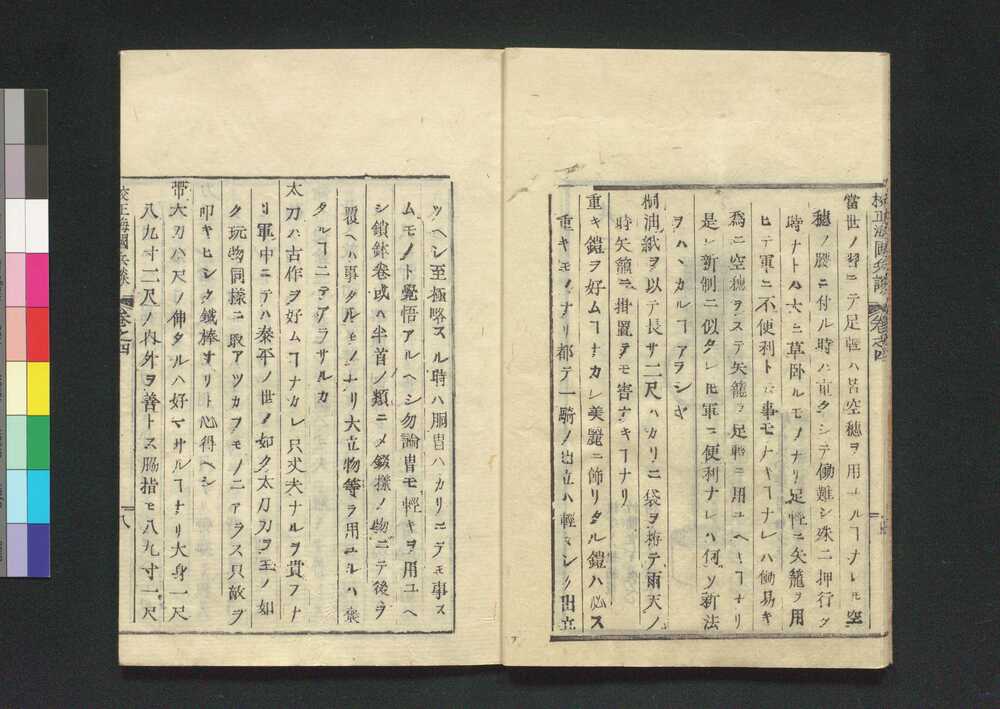 校正海國兵談 卷之四
當世ノ習ニテ足輕ハ皆空穂ヲ用ユルヿナレ𪜈空
穂ノ腰ニ付ル時ハ重クシテ働難シ殊ニ押行ノ
時ナトハ大ニ草臥ルモノナリ足輕ニ矢籠ヲ用
ヒテ軍ニ不便利ト云事モナキヿナレハ働易キ
爲ニ空穂ヲステ矢籠ヲ足輕ニ用ユヘキヿナリ
是レ新制ニ似タレ𪜈軍ニ便利ナレハ何ソ新法
ヲハヽカルヿアランヤ
桐油紙ヲ以テ長サ二尺ハカリニ袋ヲ拵テ雨天ノ
時矢籠ニ掛置ヲモ害ナキヿナリ
重キ鎧ヲ好ムヿナカレ美麗ニ飾リタル鎧ハ必ス
重キモノナリ都テ一騎ノ出立ハ輕々シク出立
ツヘシ至極略スル時ハ胴冑ハカリニテモ事ス
ムモノト覺悟アルヘシ勿論冑モ輕キヲ用ユヘ
シ鎖鉢卷或ハ半首ノ類ニメ錣樣ノ物ニテ後ヲ
覆ヘハ事タルモノナリ大立物等ヲ用ユルハ衆
タルヿニテアラサルカ
太刀ハ古作ヲ好ムヿナカレ只丈夫ナルヲ貴フナ
リ軍中ニテハ泰平ノ世ノ如ク太刀刀ヲ玉ノ如
ク玩物同樣ニ取アツカフモノニアラス只敵ヲ
叩キヒシク鐵棒ナリト心得ヘシ
帶大刀ハ尺ノ伸タルハ好マサルヿナリ大身一尺
八九寸二尺ノ内外ヲ善トス脇指モ八九寸一尺
校正海國兵談 卷之四 八